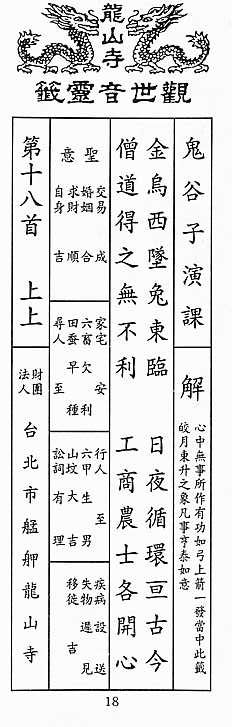 龍山寺
觀世音靈籤
鬼谷子演課
解
心中無事所作有功如弓上箭一發當中此籤
皎月東升之象凡事亨泰如意
金烏西墜兔東臨 日夜循環亘古今
僧道得之無不利 工商農士各開心
聖意
交易 成
婚姻 合
求財 順
自身 吉
家宅 安
六畜 欠利
田蚕 早種
尋人 至
行人 至
六甲 生男
山坟 大吉
訟詞 有理
疾病 設送
失物 遲見
移徙 吉
第十八首 上上
財團法人 台北市艋舺龍山寺
18